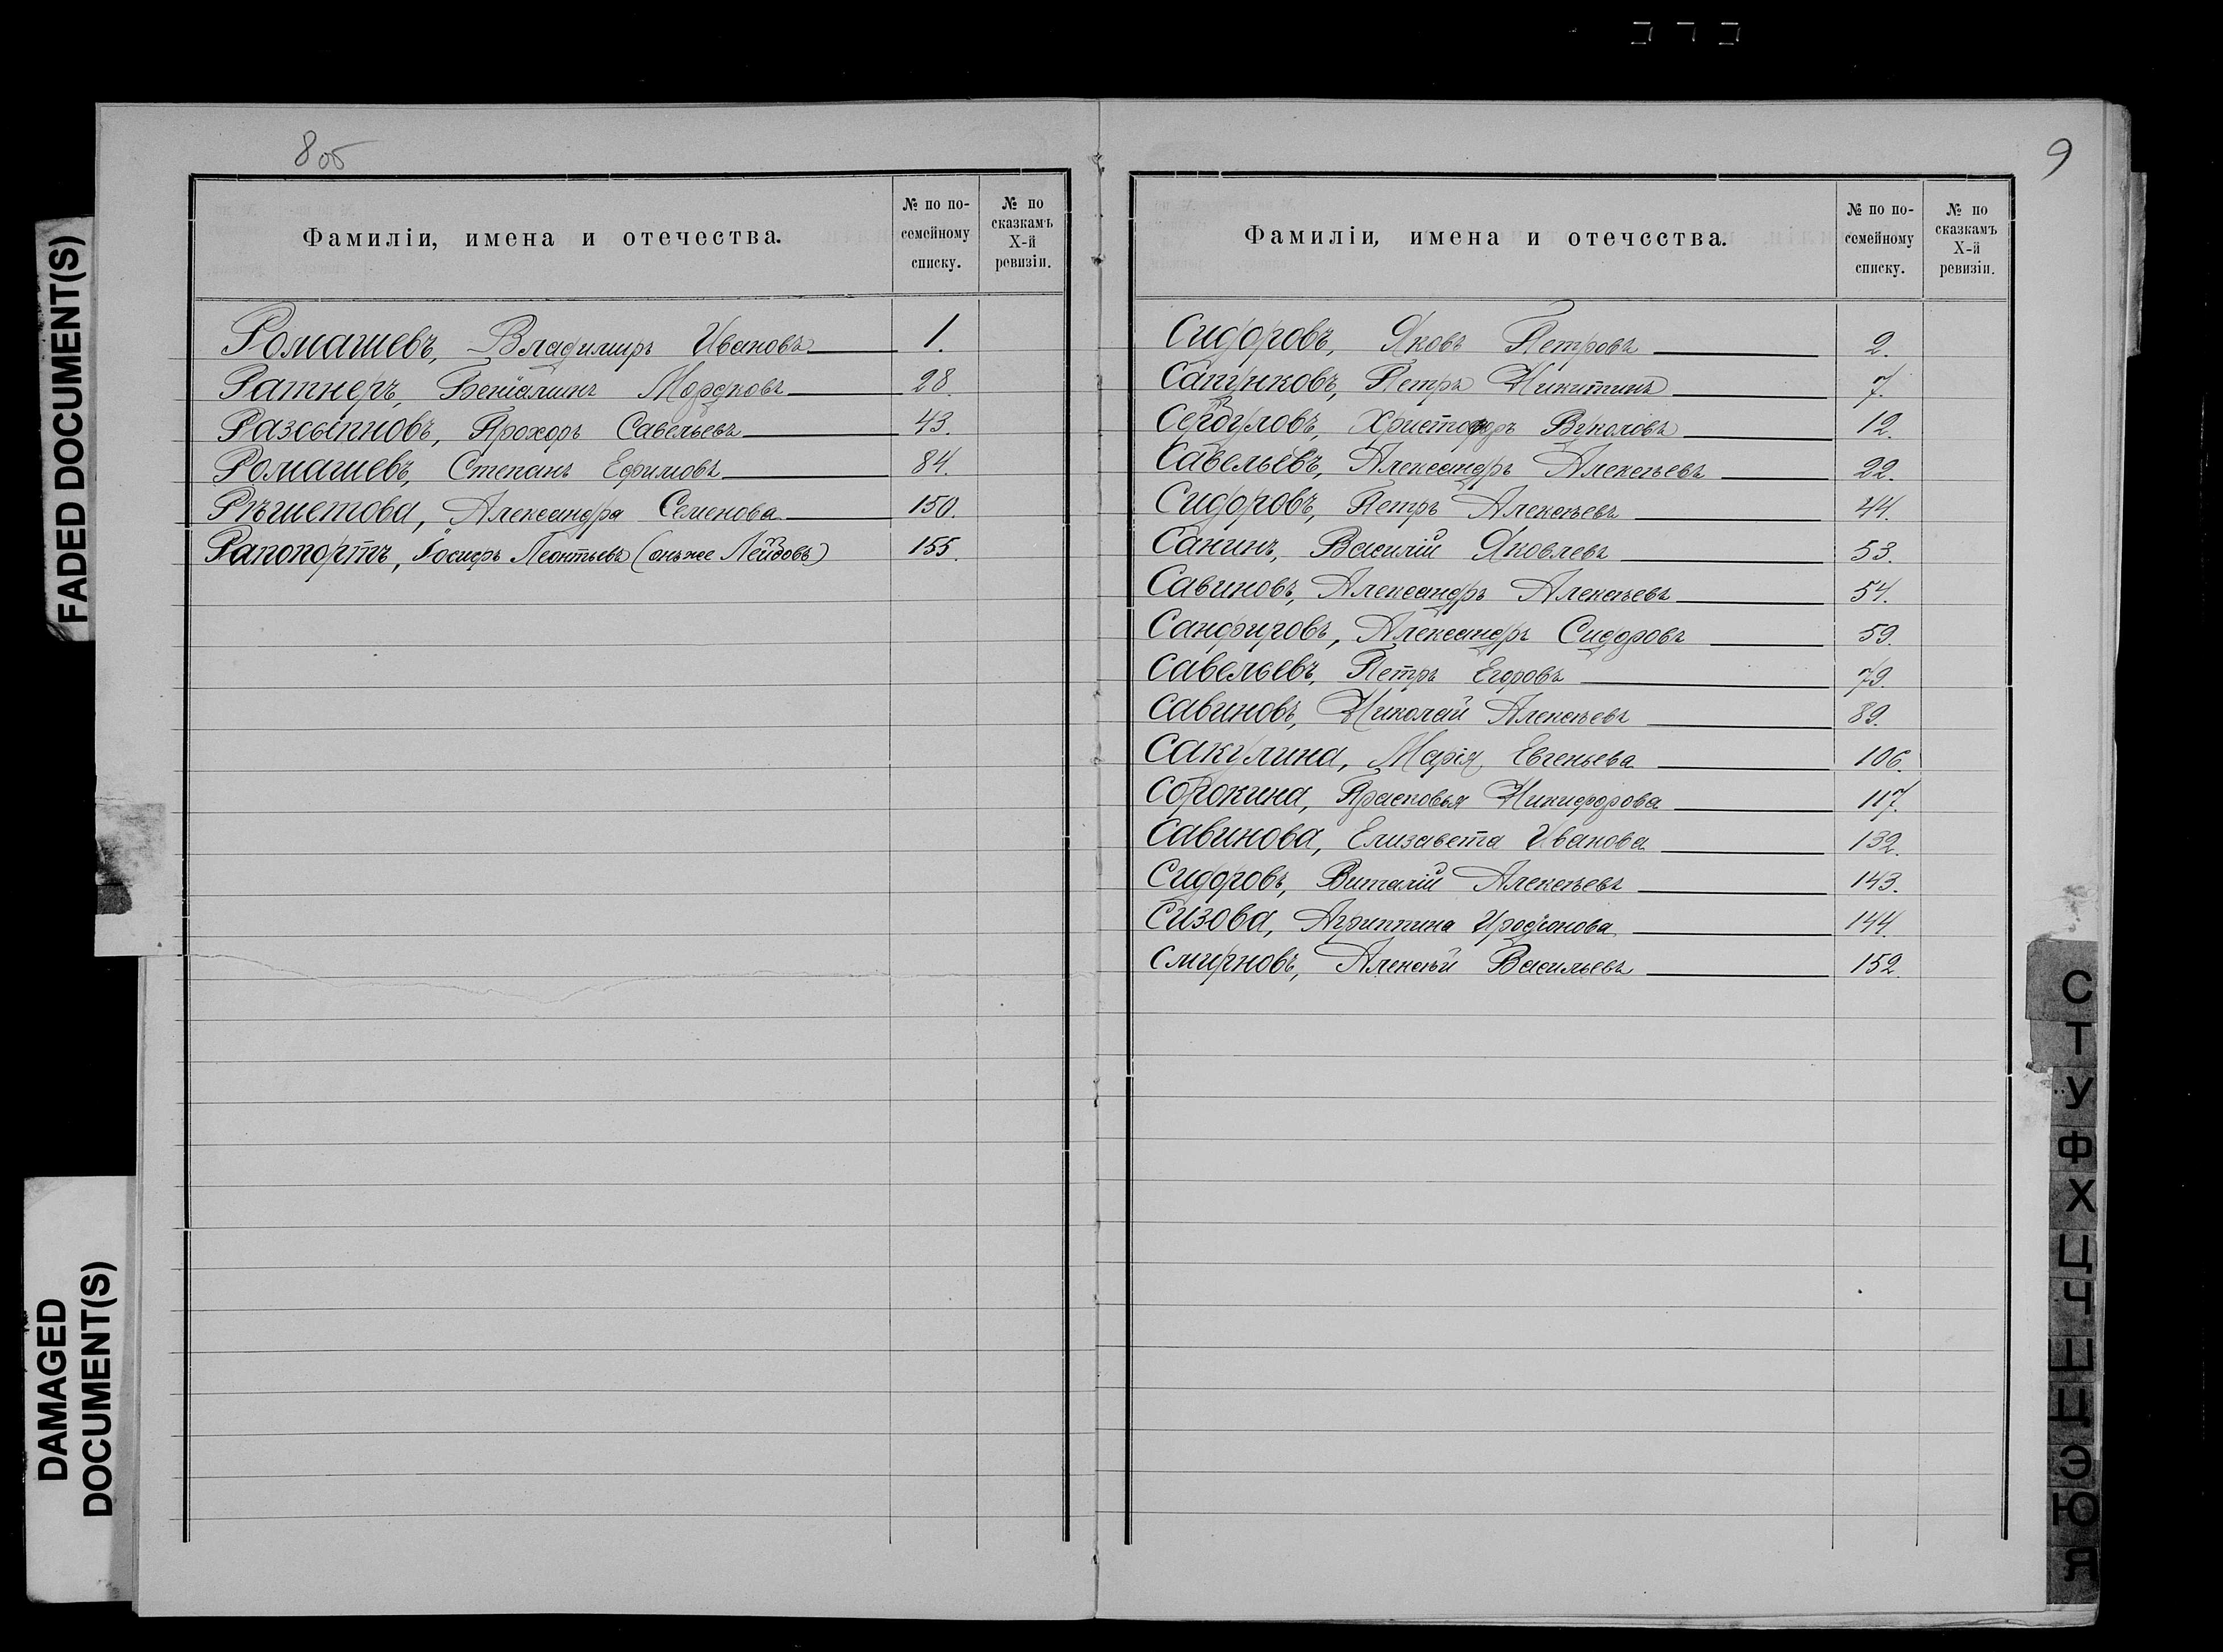 8 об
Фамиліи, имена и отечества.
№ по по-
семейному
списку.
№ по
сказкамъ
X-й
ревизіи.
Ромашевъ, Владимиръ Ивановъ 1.
Ратнеръ, Беніаминъ Мордковъ 28.
Разсыпновъ, Прохоръ Савельевъ 43.
Ромашевъ, Степанъ Ефимовъ 84.
Рѣшетова, Александра Семенова 150.
Рапопортъ, Іосифъ Леонтьевъ (онъ же Лейбовъ) 155.
9
Фамиліи, имена и отечества.
№ по по-
семейному
списку.
№ по
сказкамъ
X-й
ревизіи.
Сидоровъ, Яковъ Петровъ 2.
Сапунковъ, Петръ Никитинъ 7.
Христофоръ Вуколовъ 12.
Савельевъ, Александръ Алексѣевъ 22.
Сидоровъ, Петръ Алексѣевъ 44.
Санинъ, Василій Яковлевъ 53.
Савиновъ, Александръ Алексѣевъ 54.
Санфировъ, Александръ Сидоровъ 59.
Савельевъ, Петръ Егоровъ 79.
Савиновъ, Николай Алексѣевъ 89.
Сакулина, Марія Евгеньева 106.
Сорокина, Прасковья Никифорова 117.
Савинова, Елизавета Иванова 132.
Сидоровъ, Виталій Алексѣевъ 143.
Сизова, Агриппина Иродіонова 144.
Смирновъ, Алексѣй Васильевъ 152.
FADED DOCUMENT(S)
DAMAGED
DOCUMENT(S)
С
Т
У
Ф
Х
Ц
Ч
Ш
Щ
Э
Ю
Я